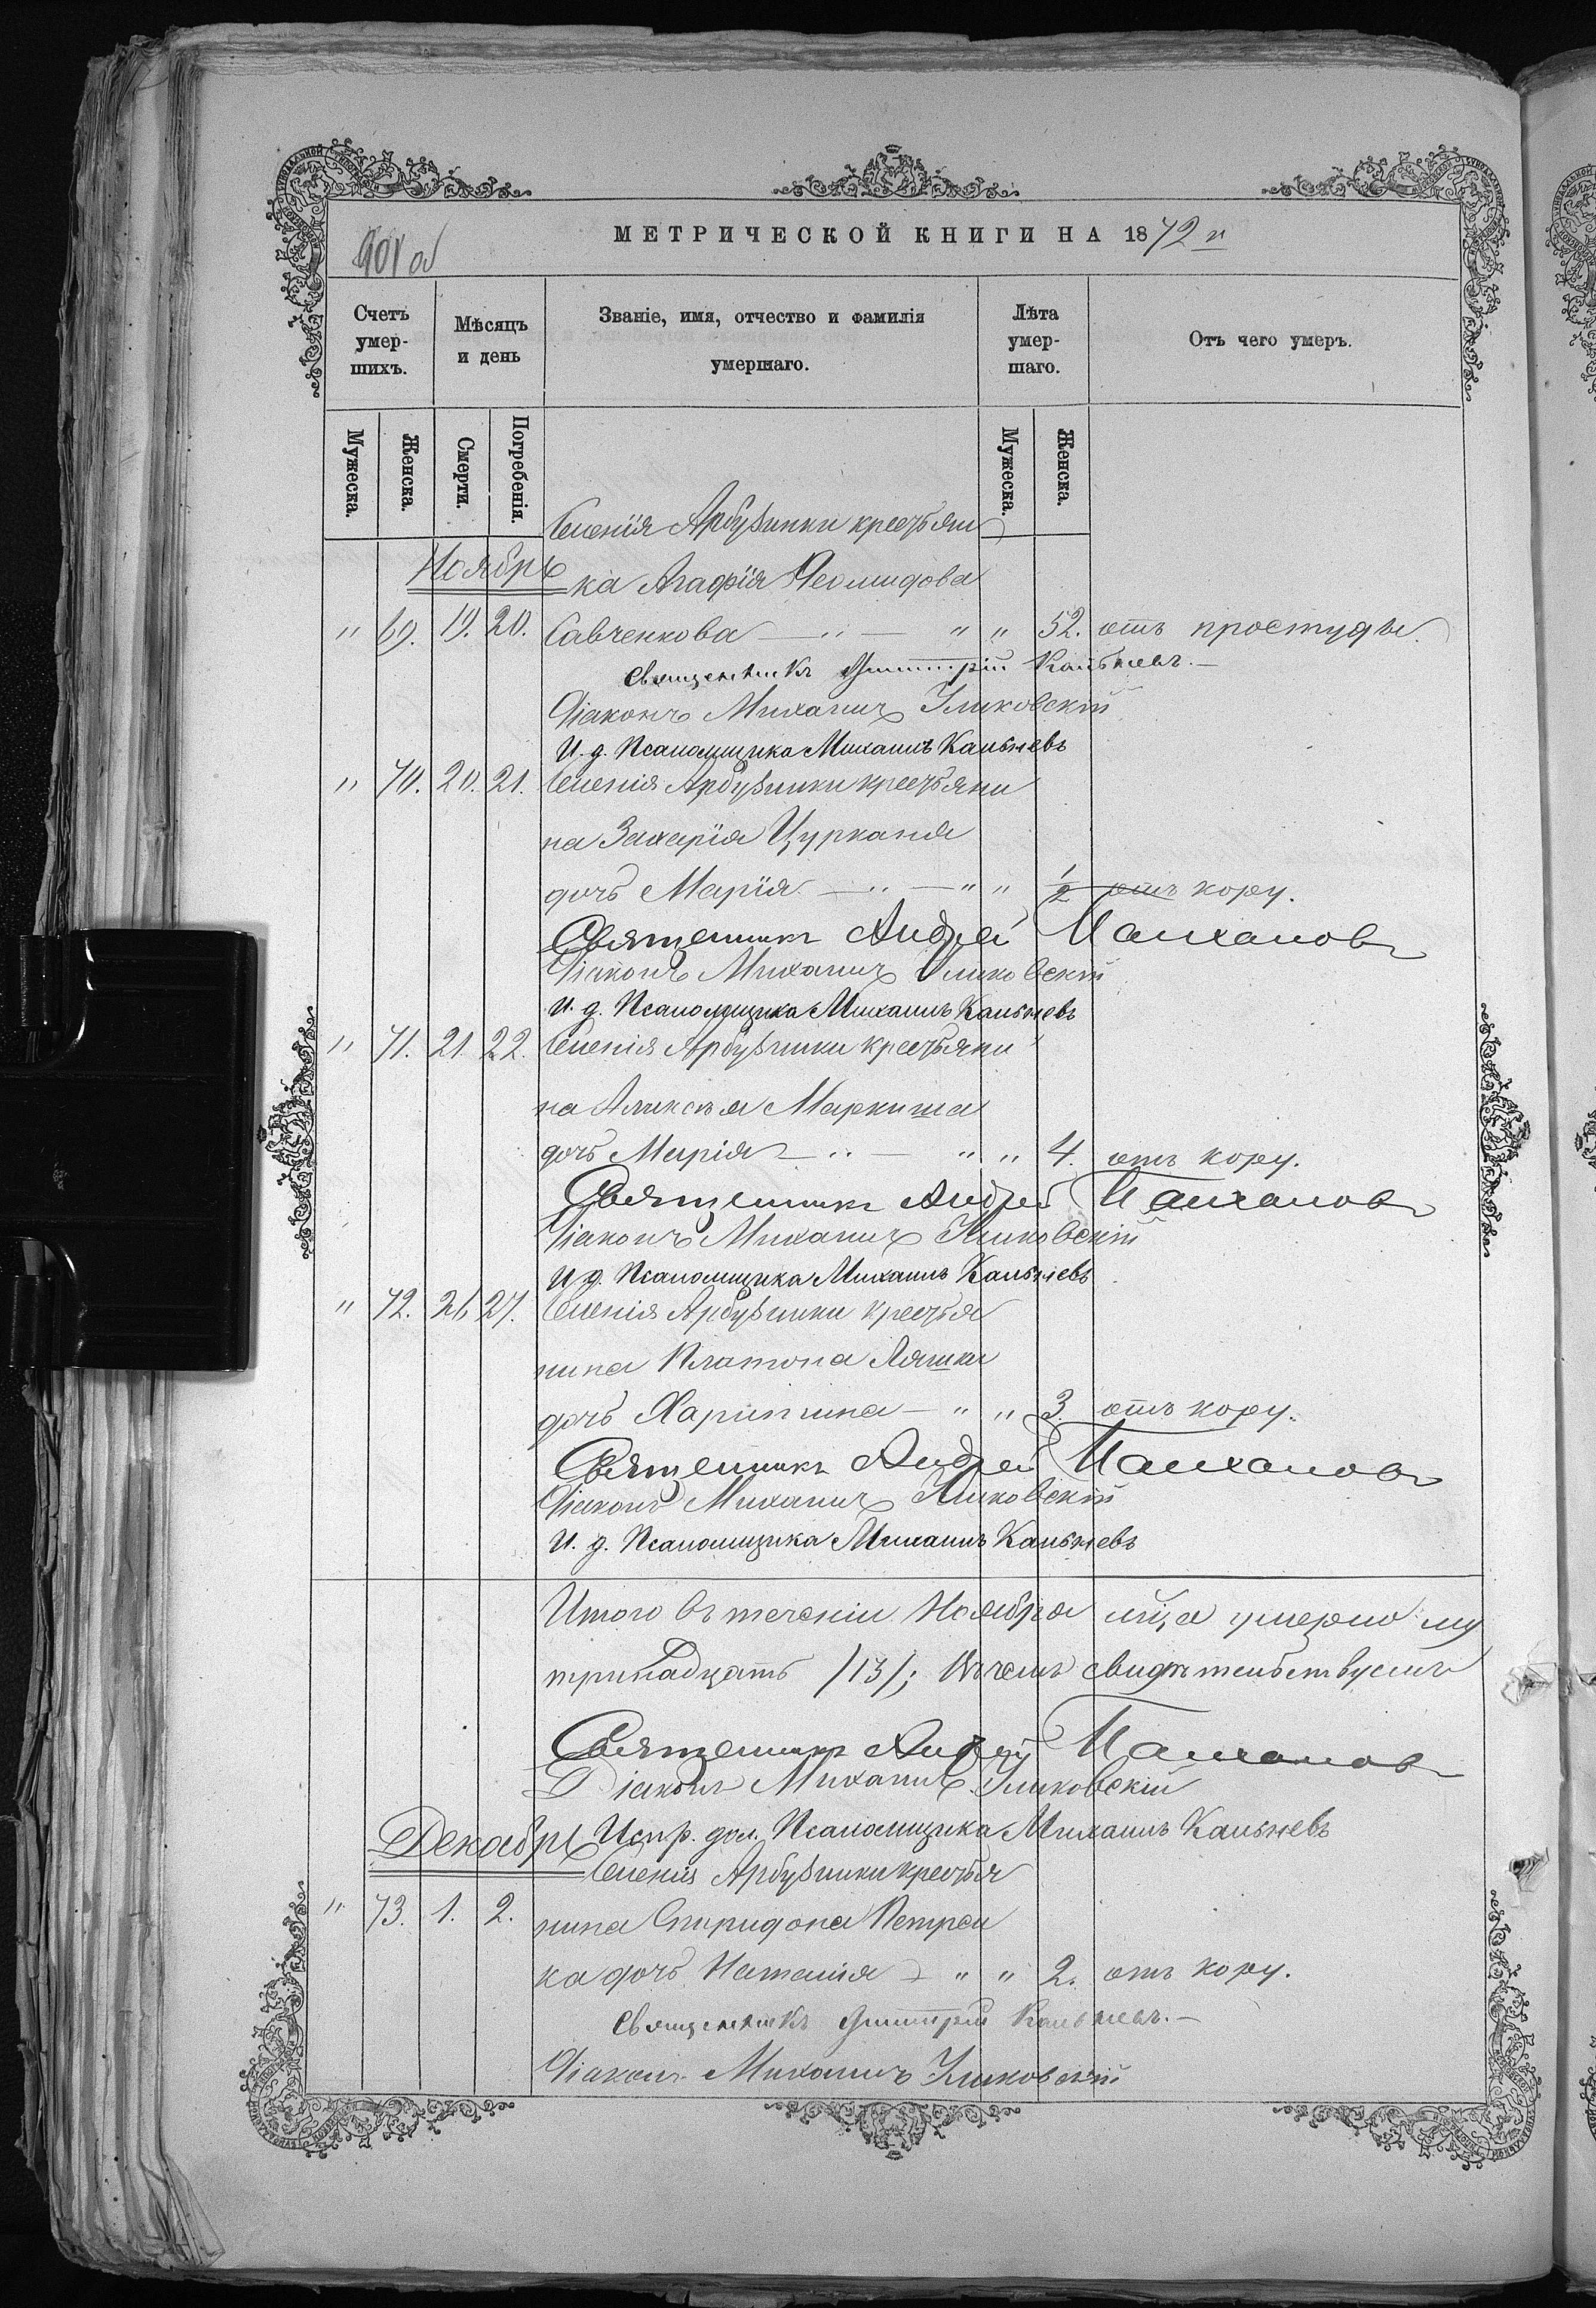 МЕТРИЧЕСКОЙ КНИГИ НА 1872 г
901 об
Счетъ умер-шихъ.
Мѣсяцъ и день
Званіе, имя, отчество и фамилія умершаго.
Лѣта умер-шаго.
Отъ чего умеръ.
Мужеска. Женска. Смерти. Погребенія. Мужеска. Женска.
Селенія Арбузинки крестьян
Ноябрь
ка Агафія Леомидова
" 69. 19. 20. Савченкова — " — " " 52. отъ простуды.
Священникъ Димитрій Кальневъ. —
Діаконъ Михаилъ Уликовскій
И. д. Псаломщика Михаилъ Кальневъ
" 70. 20. 21. Селенія Арбузинки крестьяни
на Захарія Цуркана
дочь Марія — " — " " 1/2 отъ кору.
Священникъ Андрей
Діаконъ Михаилъ Уликовскій
И. д. Псаломщика Михаилъ Кальневъ
" 71. 21. 22. Селенія Арбузинки крестьяни
на Алексѣя Маркиша
дочь Марія — " — " " 4. отъ кору.
Священникъ Андрей
Діаконъ Михаилъ Уликовскій
И. д. Псаломщика Михаилъ Кальневъ
" 72. 26 27. Селенія Арбузинки крестья
нина Платона Ляшки
дочь Харитина — " " 3. отъ кору.
Священникъ Андрей
Діаконъ Михаилъ Уликовскій
И. д. Псаломщика Михаилъ Кальневъ
Итого въ теченіи Ноября мѣца умерло му
тринадцать /13/; Въ чемъ свидѣтельствуемъ
Священникъ Андрей
Діаконъ Михаилъ Уликовскій
Декабрь
Испр. дол. Псаломщика Михаилъ Кальневъ
Селенія Арбузинки крестья
" 73. 1. 2. нина Спиридона Петрен
ка дочь Наталія — " " 2. отъ кору.
Священникъ Димитрій Кальневъ. —
Діаконъ Михаилъ Уликовскій